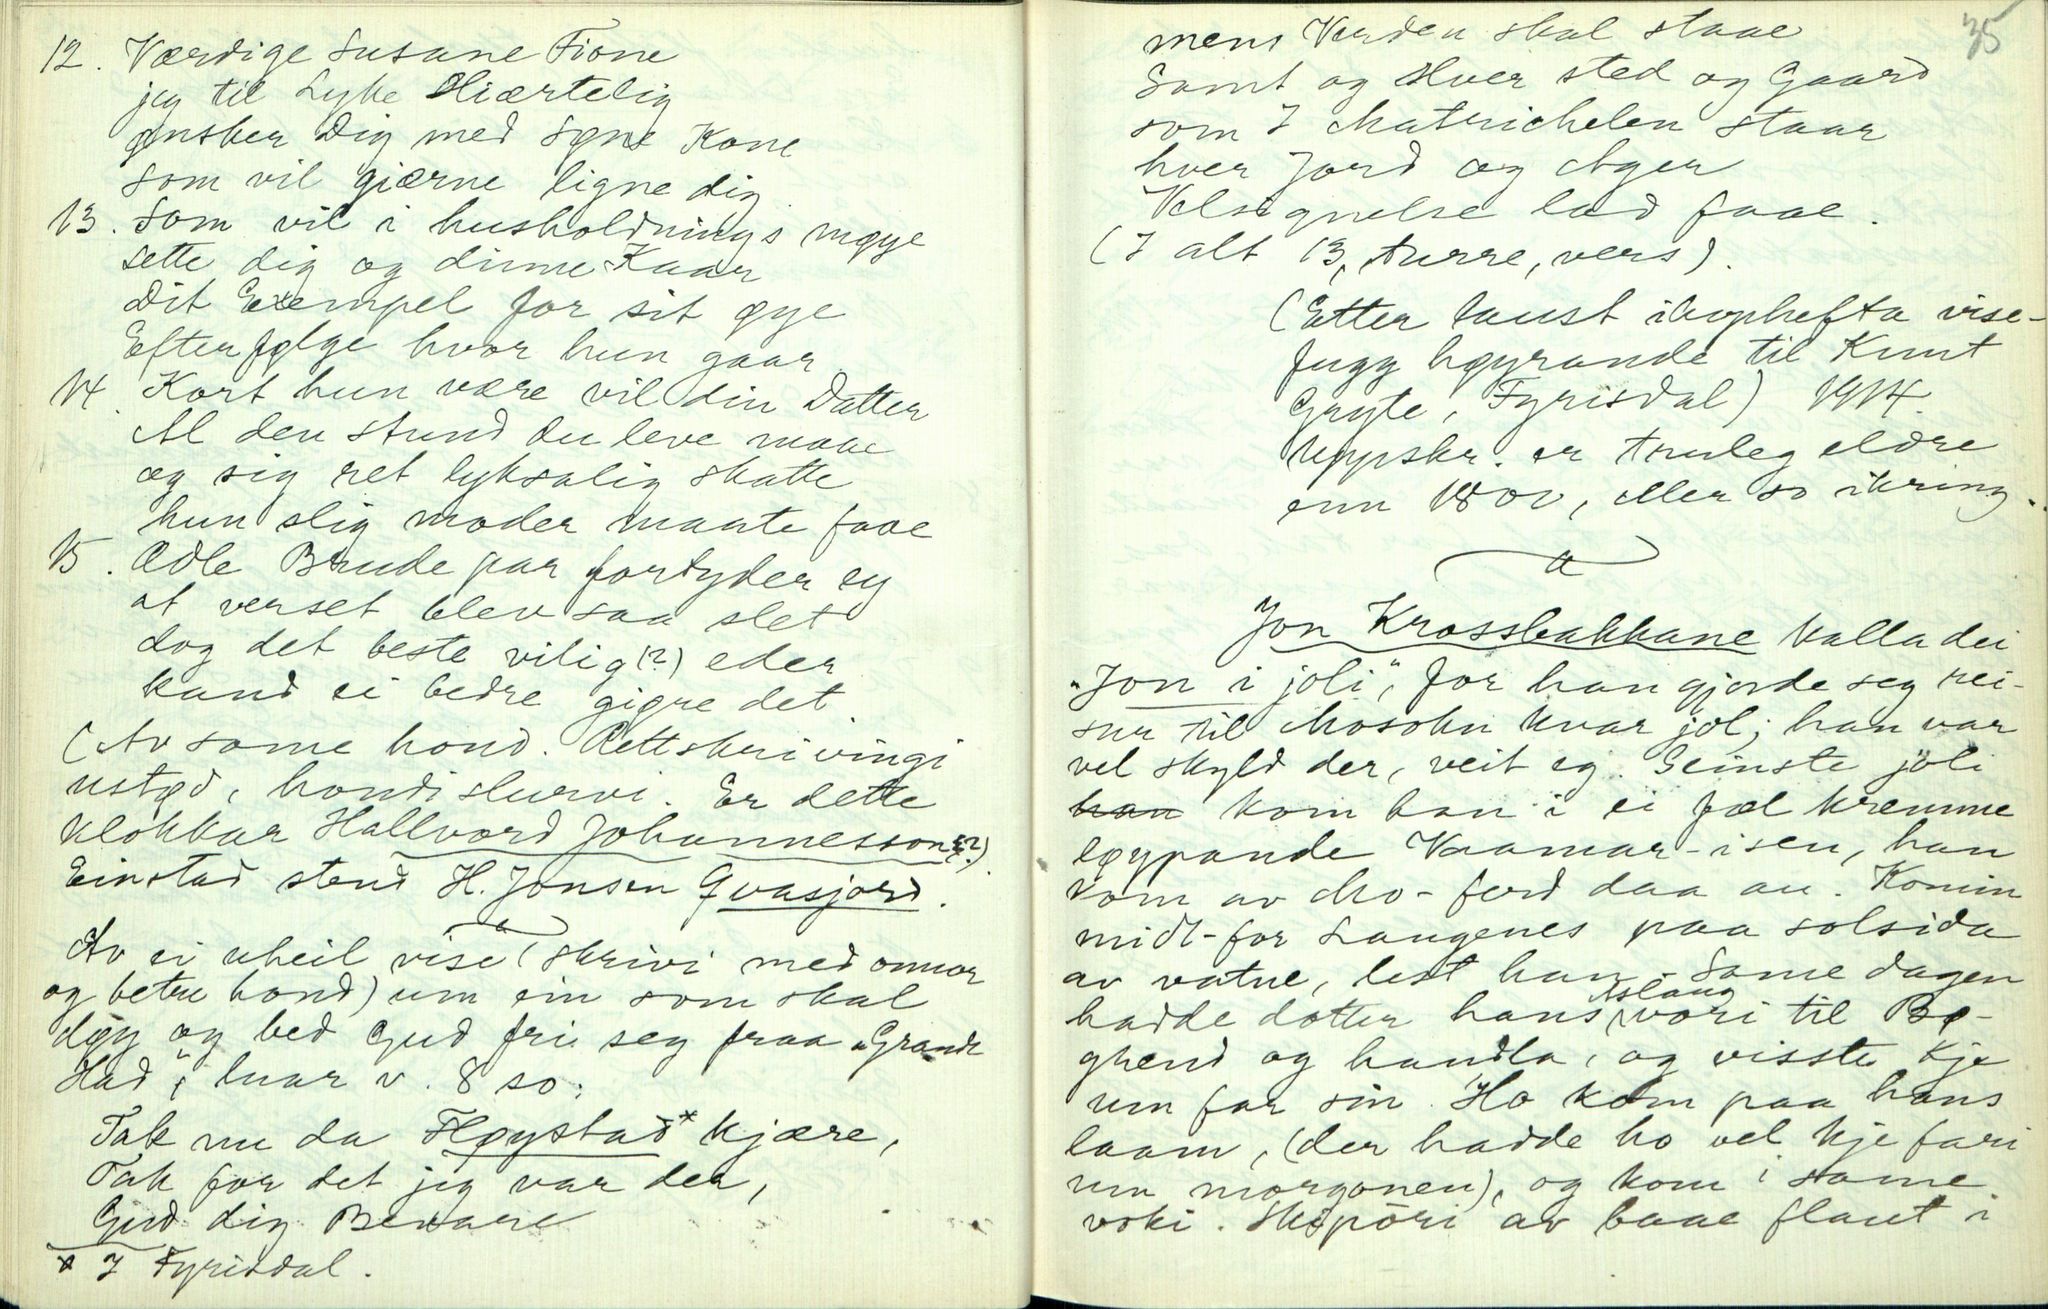 12. Værdige Susane Fione
jeg til Lyke Hiærtelig
ønsker Dig med Søns Kone
som vil giærne ligne dig
13. Som vil i husholdnings møye
sette dig og dinne Kaar
Dit Exempel for sit øye
Efterfølge hvor hun gaar
14. Kort hun være vil din Datter
Al den stund du leve maae
og sig ret lyksalig skatte
hun slig moder maate faae
15. Ædle Brude par fortyder ey
at verset blev saa slet
dog det beste vilig (?) eder
kand ei bedre giøre det
(Av same hond. Rettskrivingi
ustød, hondi slurvi. Er dette
klokkar Hallvord Johannesson (?)
Einstad stend H. Jonsen Qvasjord.
Av ei uheil vise (skrivi med onnor
og betre hond) um ein som skal
døy og bed Gud fri seg fraa "Grande
Had", luar v. 8 so:
Tak nu da Fløystad* kjære,
Tak for det jeg var der,
Gud dig Bevare
* I Fyrisdal.
35
mens Verden skal staae
Samt og Hver sted og Gaard
som I Matrichelen staar
hver Jord og Ager
Velsignelse lad faae.
(I alt 13, turre, vers).
(Etter laust ihophefta vise-
fugg høyrande til Knut
Gryte, Fyrisdal) 1914.
Uppskr. er truleg eldre
enn 1800, eller so ikring.
Jon Krossbakkane kalla dei
"Jon i joli", for han gjorde seg rei-
sur til Mosokn kvar jol; han var
vel skyld der, veit eg. Seinste joli
han kom han i ei fæl kremme
løypande Vraamar-isen, han
kom av Mo-ferd daa au. Komin
midt-for Langenes paa solsida
av vatne, lest han. Same dagen
hadde dotter hans Aslaug vori til Bø-
grend og handla, og visste kje
um far sin. Ho kom paa hans
laam, (der hadde ho vel kje fari
um morgonen), og kom i same
voki. Skipōri av baae flaut i